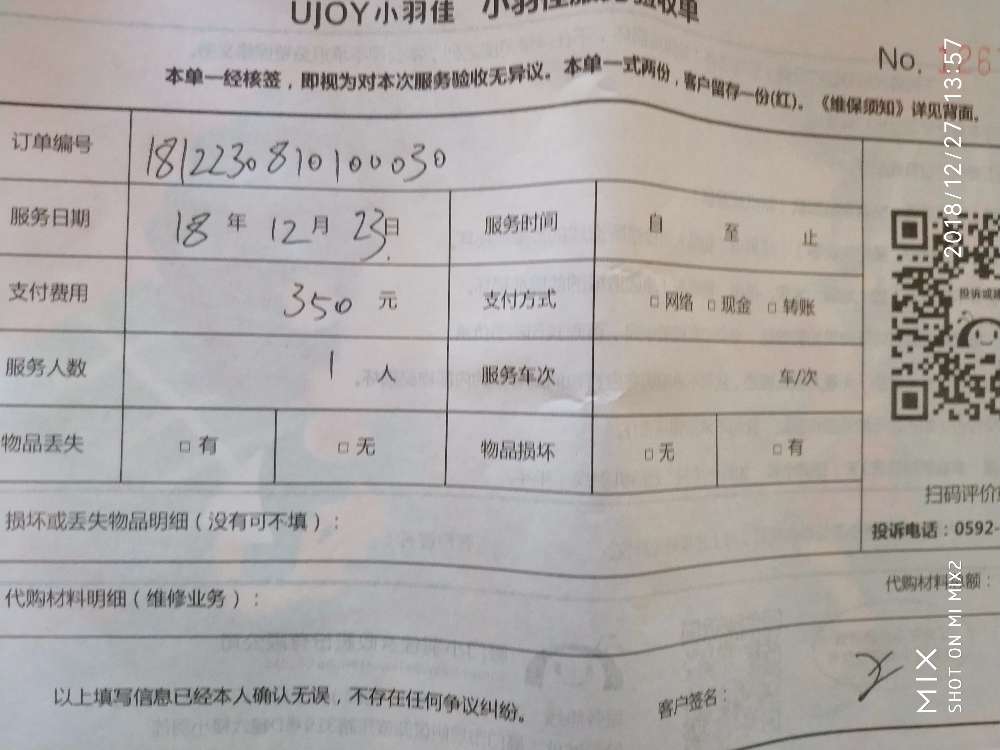 UJOY小羽佳 小羽佳服务验收单
No. 126
本单一经核签，即视为对本次服务验收无异议。本单一式两份，客户留存一份(红)。《维保须知》详见背面。
订单编号 1812230810100030
服务日期 18 年 12 月 23 日 服务时间 自 至 止
支付费用 350 元 支付方式 □ 网络 □ 现金 □ 转账
服务人数 1 人 服务车次 车/次
物品丢失 □ 有 □ 无 物品损坏 □ 无 □ 有
投诉或
扫码评价
投诉电话：0592-
损坏或丢失物品明细（没有可不填）：
代购材料明细（维修业务）： 代购材料总额：
以上填写信息已经本人确认无误，不存在任何争议纠纷。 客户签名：
2018/12/27 13:57
MIX
SHOT ON MI MIX2